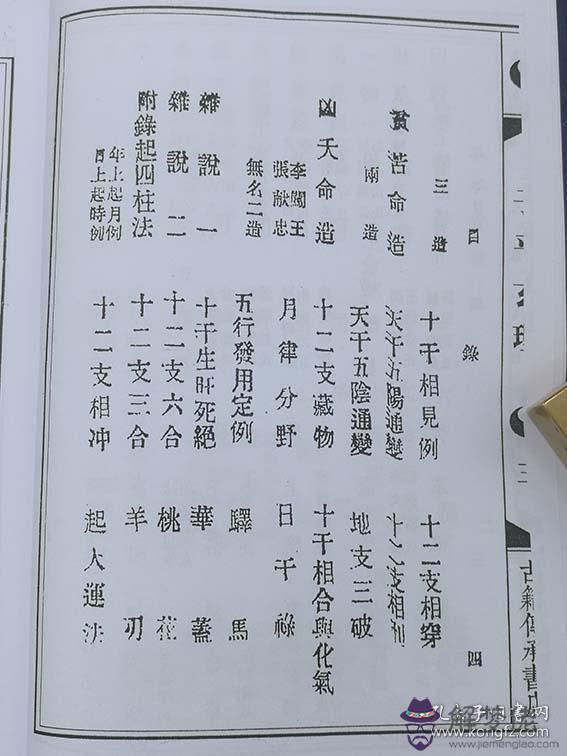 目錄 四
三造
貧苦命造
兩造
凶夭命造
李闖王
張献忠
無名二造
雜說一
雜說二
附錄起四柱法
年上起月例
日上起時例
十干相見例
天干五陽通變
天干五陰通變
十二支藏物
月律分野
五行發用定例
十干生旺死絕
十二支六合
十二支三合
十二支相冲
十二支相穿
十二支相刑
地支三破
十干相合與化氣
日干祿
驛馬
華蓋
桃花
羊刃
起大運法
三
古籍傳承書
孔夫子旧书网
www.kongfz.com
解夢佬
www.jiemenglao.com